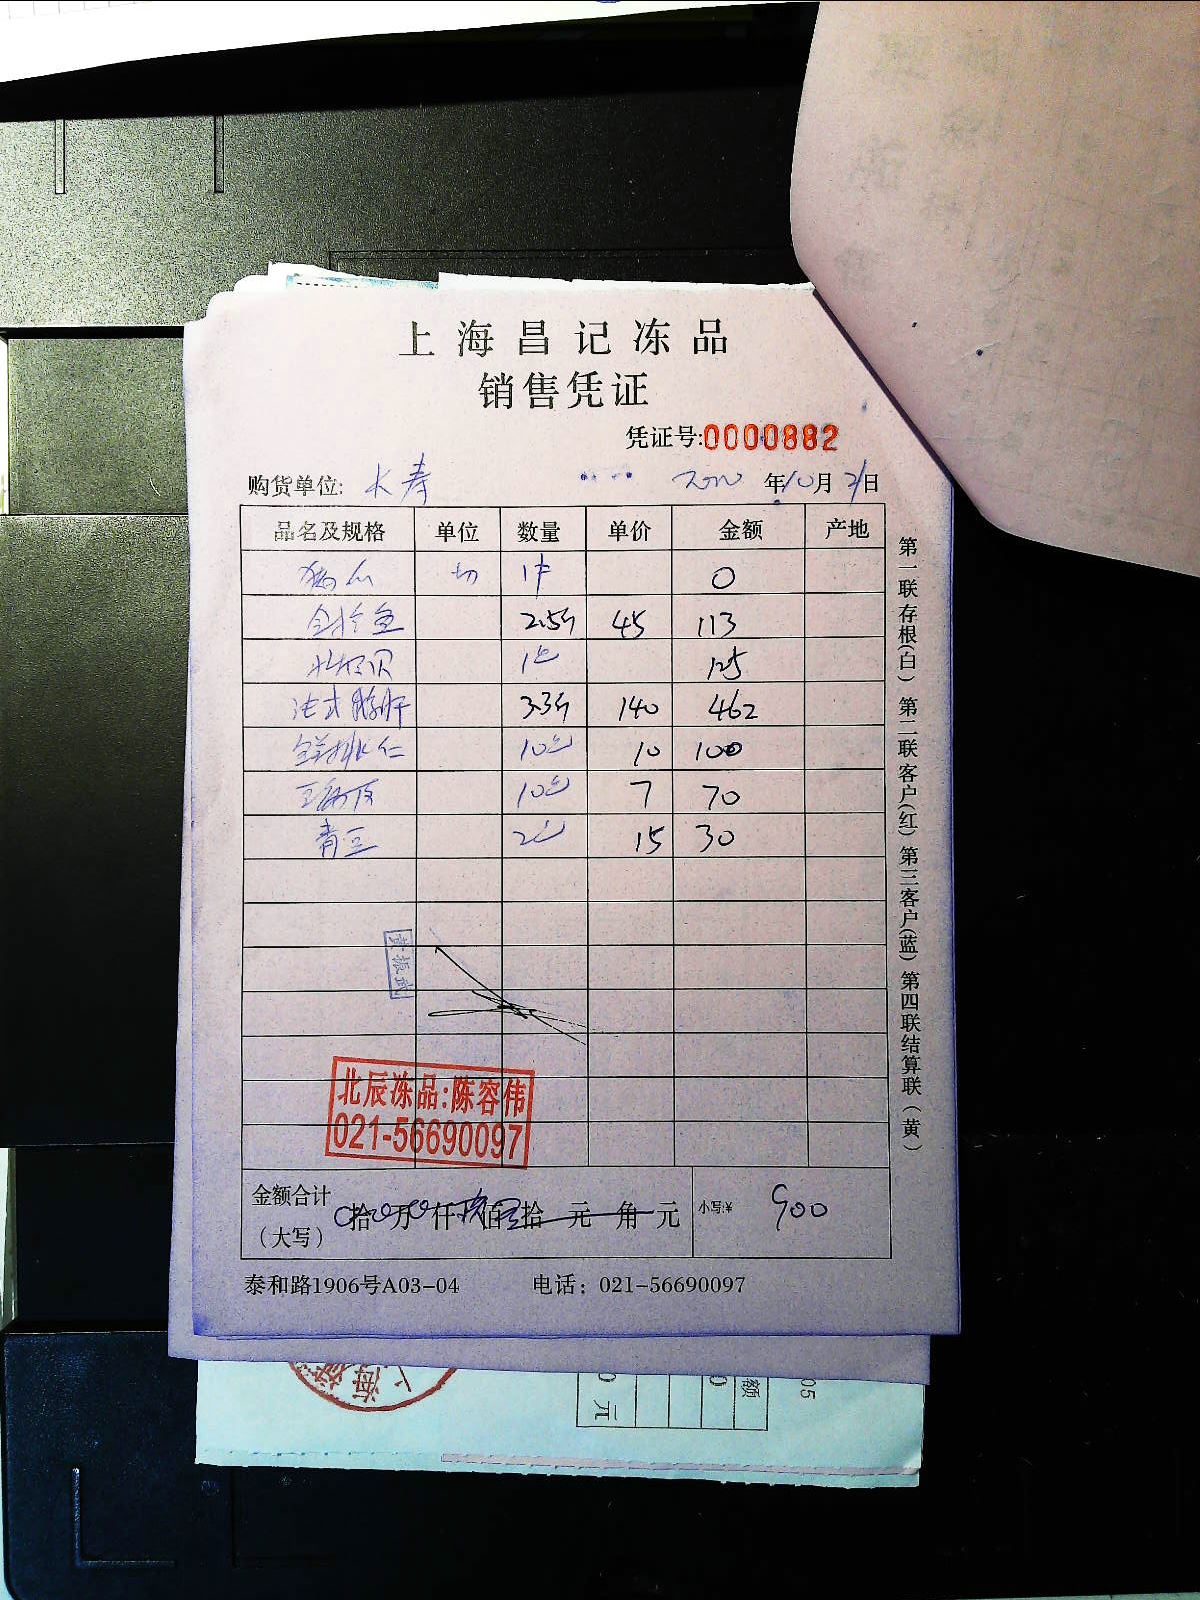 上海昌记冻品
销售凭证
凭证号:0000882
购货单位: 长寿 年10月21日
品名及规格 单位 数量 单价 金额 产地
0
2.5斤 45 113
1包 125
法式鹅肝 3.3斤 140 462
10包 10 100
10包 7 70
青豆 2包 15 30
黄振武
北辰冻品:陈容伟
021-56690097
金额合计
(大写) 拾 万 仟 佰 拾 元 角 元 小写:¥ 900
泰和路1906号A03-04 电话：021-56690097
第一联存根(白) 第二联客户(红) 第三客户(蓝) 第四联结算联(黄)
额
0 元
0
05
上海